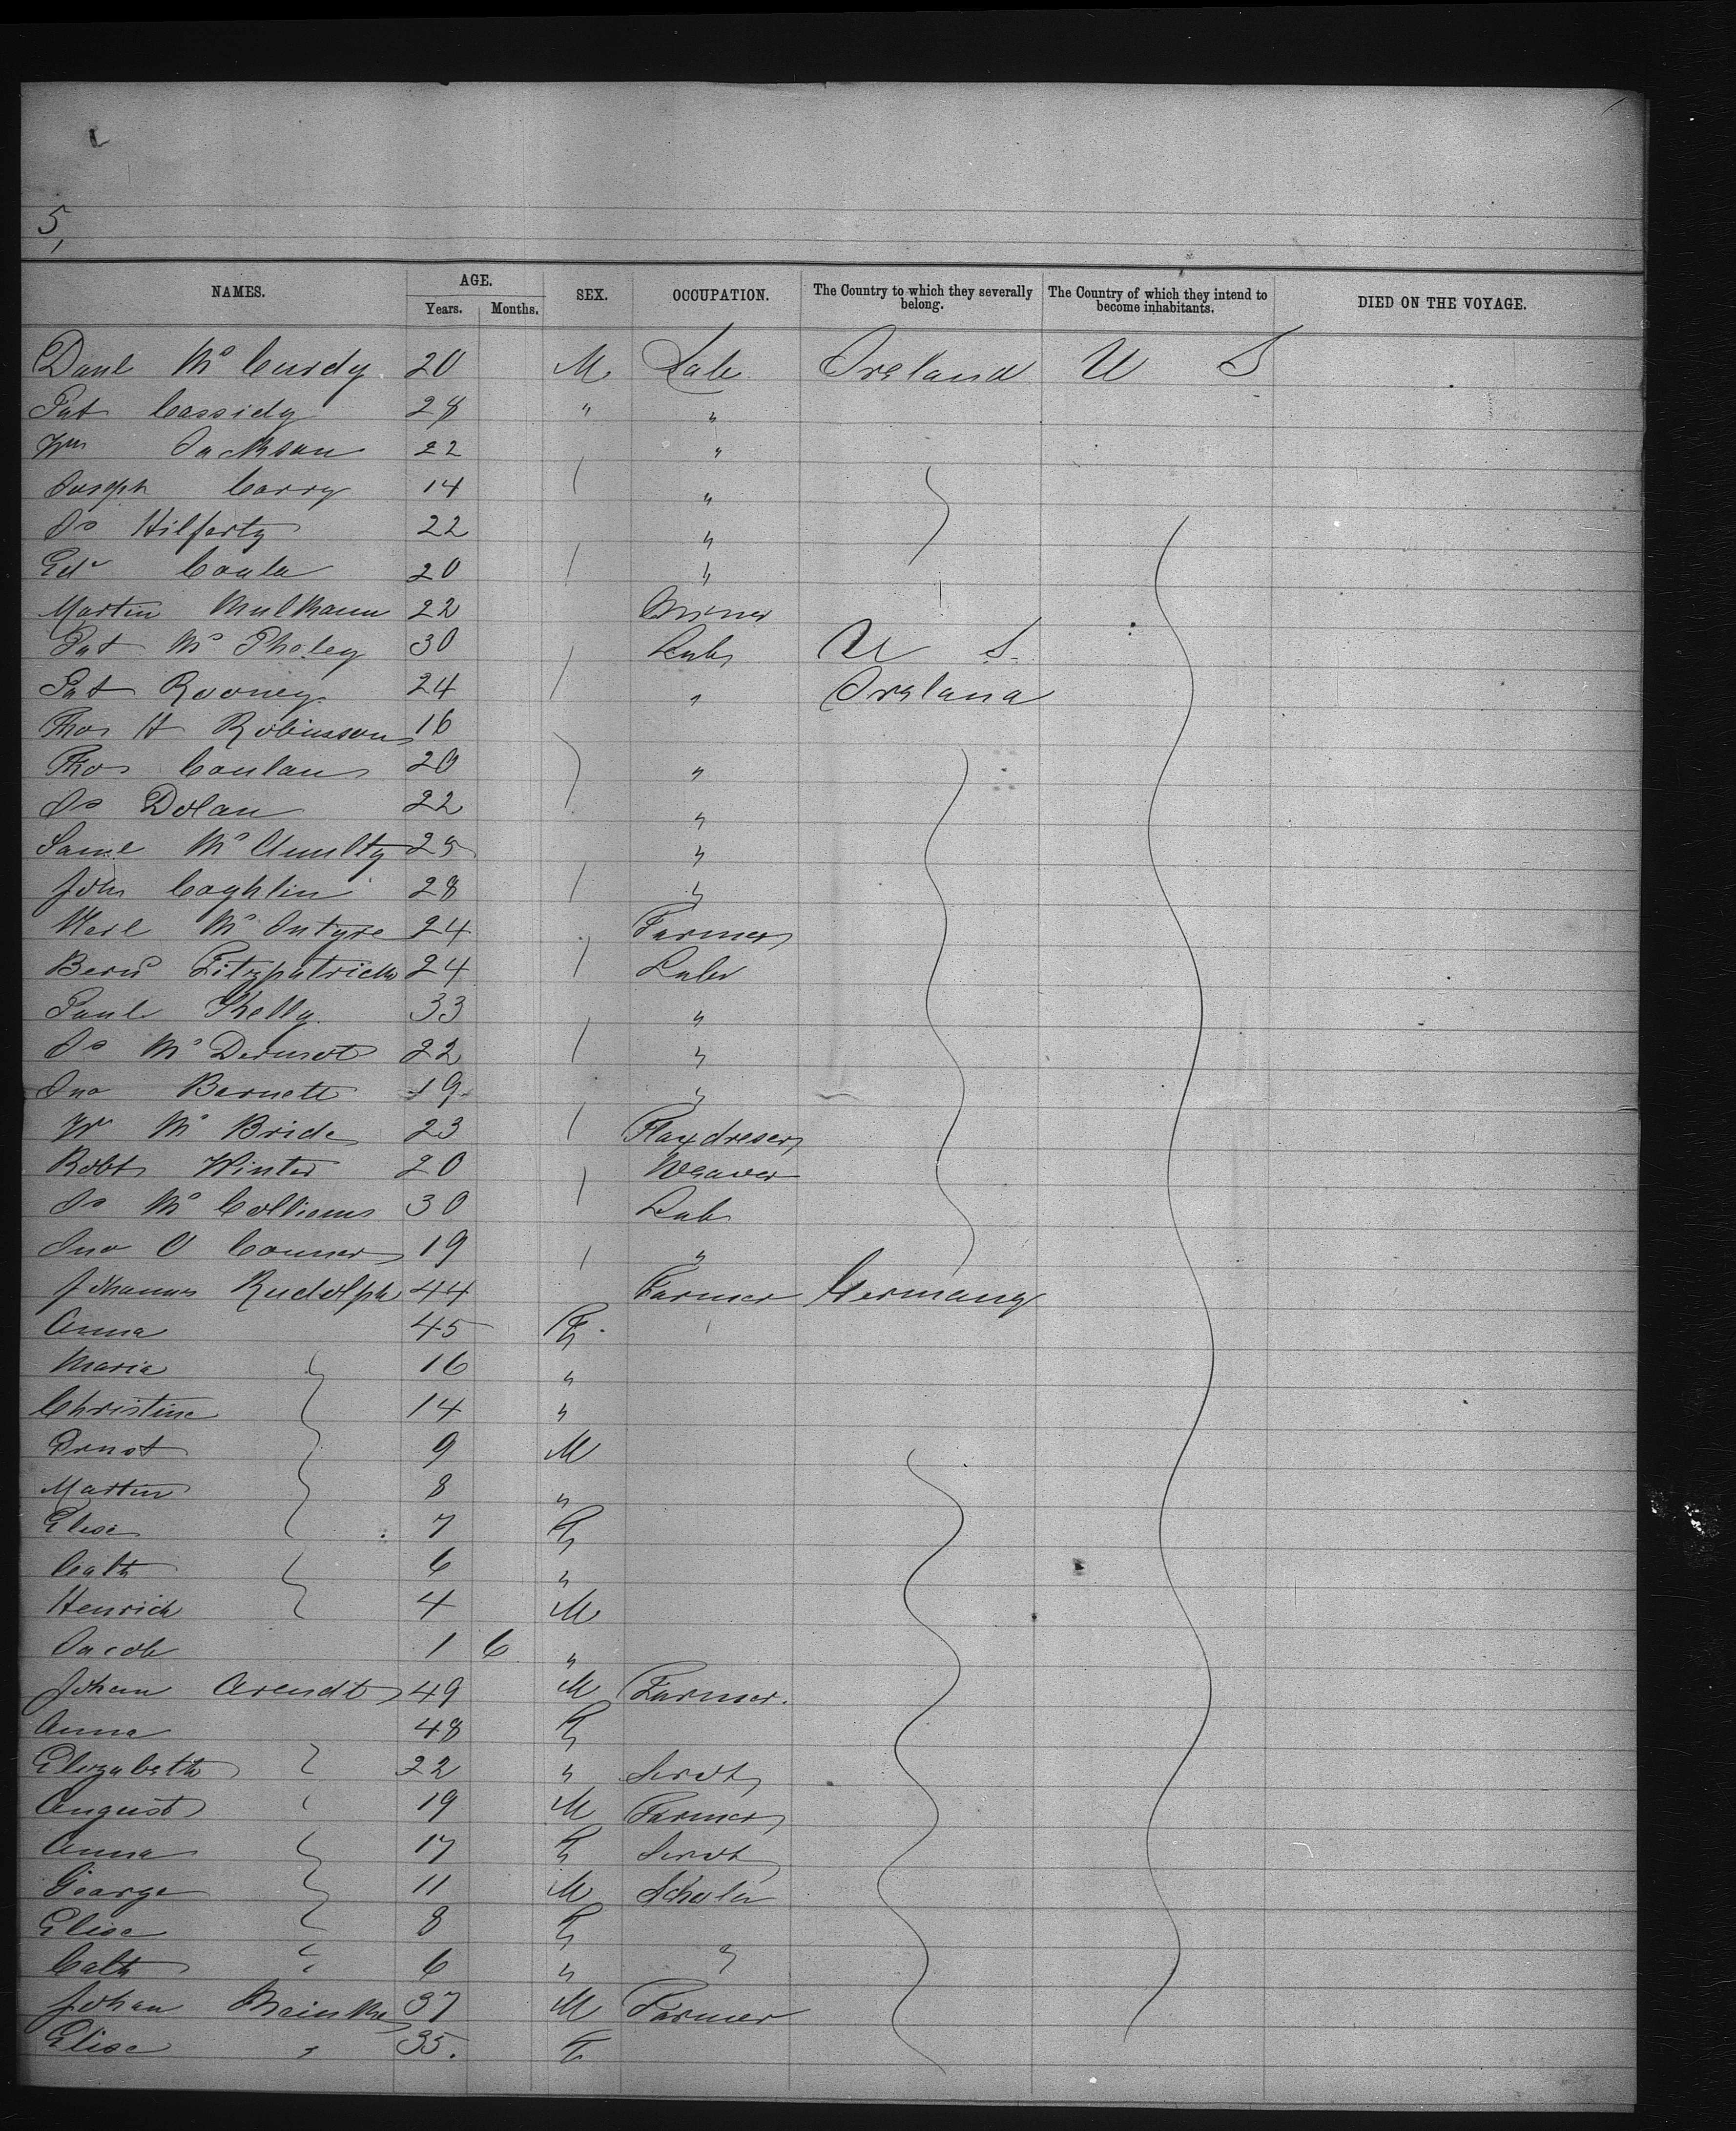 5,
NAMES. AGE. SEX. OCCUPATION. The Country to which they severally belong. The Country of which they intend to become inhabitants. DIED ON THE VOYAGE.
Years. Months.
Danl Mc Curdy 20 M Lab Ireland U S
Pat Cassidy 28 " "
Wm Jackson 22 "
Joseph Corry 14 "
Js Hilferty 22 "
Edw 20 "
Martin 22 Miner
Pat Mc 30 Lab U S
Pat Rooney 24 " Ireland
Thos H Robinson 16
Thos Conlan 20 "
Js Dolan 22 "
Saml Mc 25 "
John Coghlin 28 "
Mc Intyre 24 Farmer
Bernd Fitzpatrick 24 Labr
33 "
Js Mc Dermot 22 "
Jno Barnett 19 "
Wm Mc Bride 23 Flaxdreser
Robt Winter 20 Weaver
Js Mc 30 Lab
Jno O Conner 19 "
Johannes Rudolph 44 Farmer Germany
Anna 45 F
Maria 16 "
Christine 14 "
Ernst 9 M
Martin 8 "
Elise 7 F
Cath 6 "
Henrich 4 M
Jacob 1 6 "
Johan Arendt 49 M Farmer.
Anna 48 F
Elizabeth 22 " Servt
August 19 M Farmer
Anna 17 F Servt
George 11 M Scholar
Elise 8 F
Cath " 6 " "
Johan Meinke 37 M Farmer
Elise " 35. F